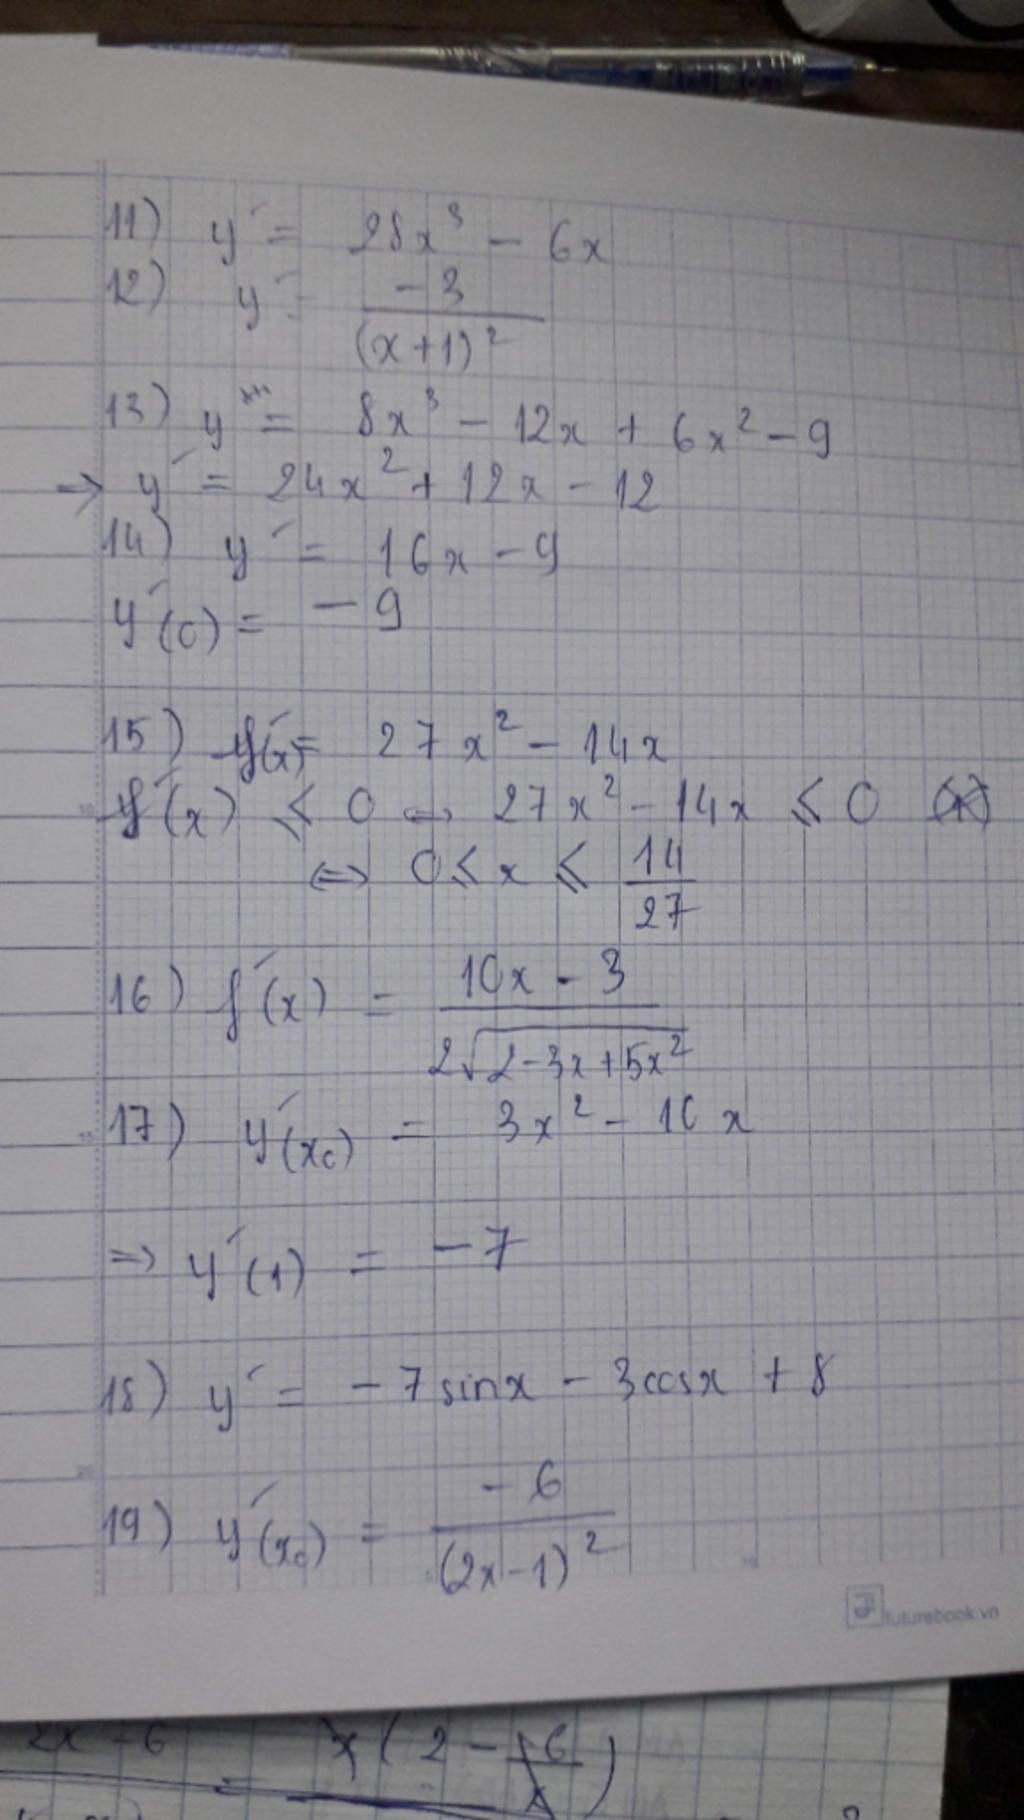 11) y' = 28x³ - 6x
12) y' = -3 / (x+1)²
13) y = 8x³ - 12x + 6x² - 9
⇒ y' = 24x² + 12x - 12
14) y' = 16x - 9
y'(0) = -9
15) f'(x) = 27x² - 14x
f'(x) ≤ 0 ⇔ 27x² - 14x ≤ 0
⇔ 0 ≤ x ≤ 14/27
16) f'(x) = (10x - 3) / 2√(2-3x+5x²)
17) y'(x₀) = 3x² - 10x
⇒ y'(1) = -7
18) y' = -7sinx - 3cosx + 8
19) y'(x₀) = -6 / (2x-1)²
futurebook.vn
2x - 6
x(2 - 6/x)